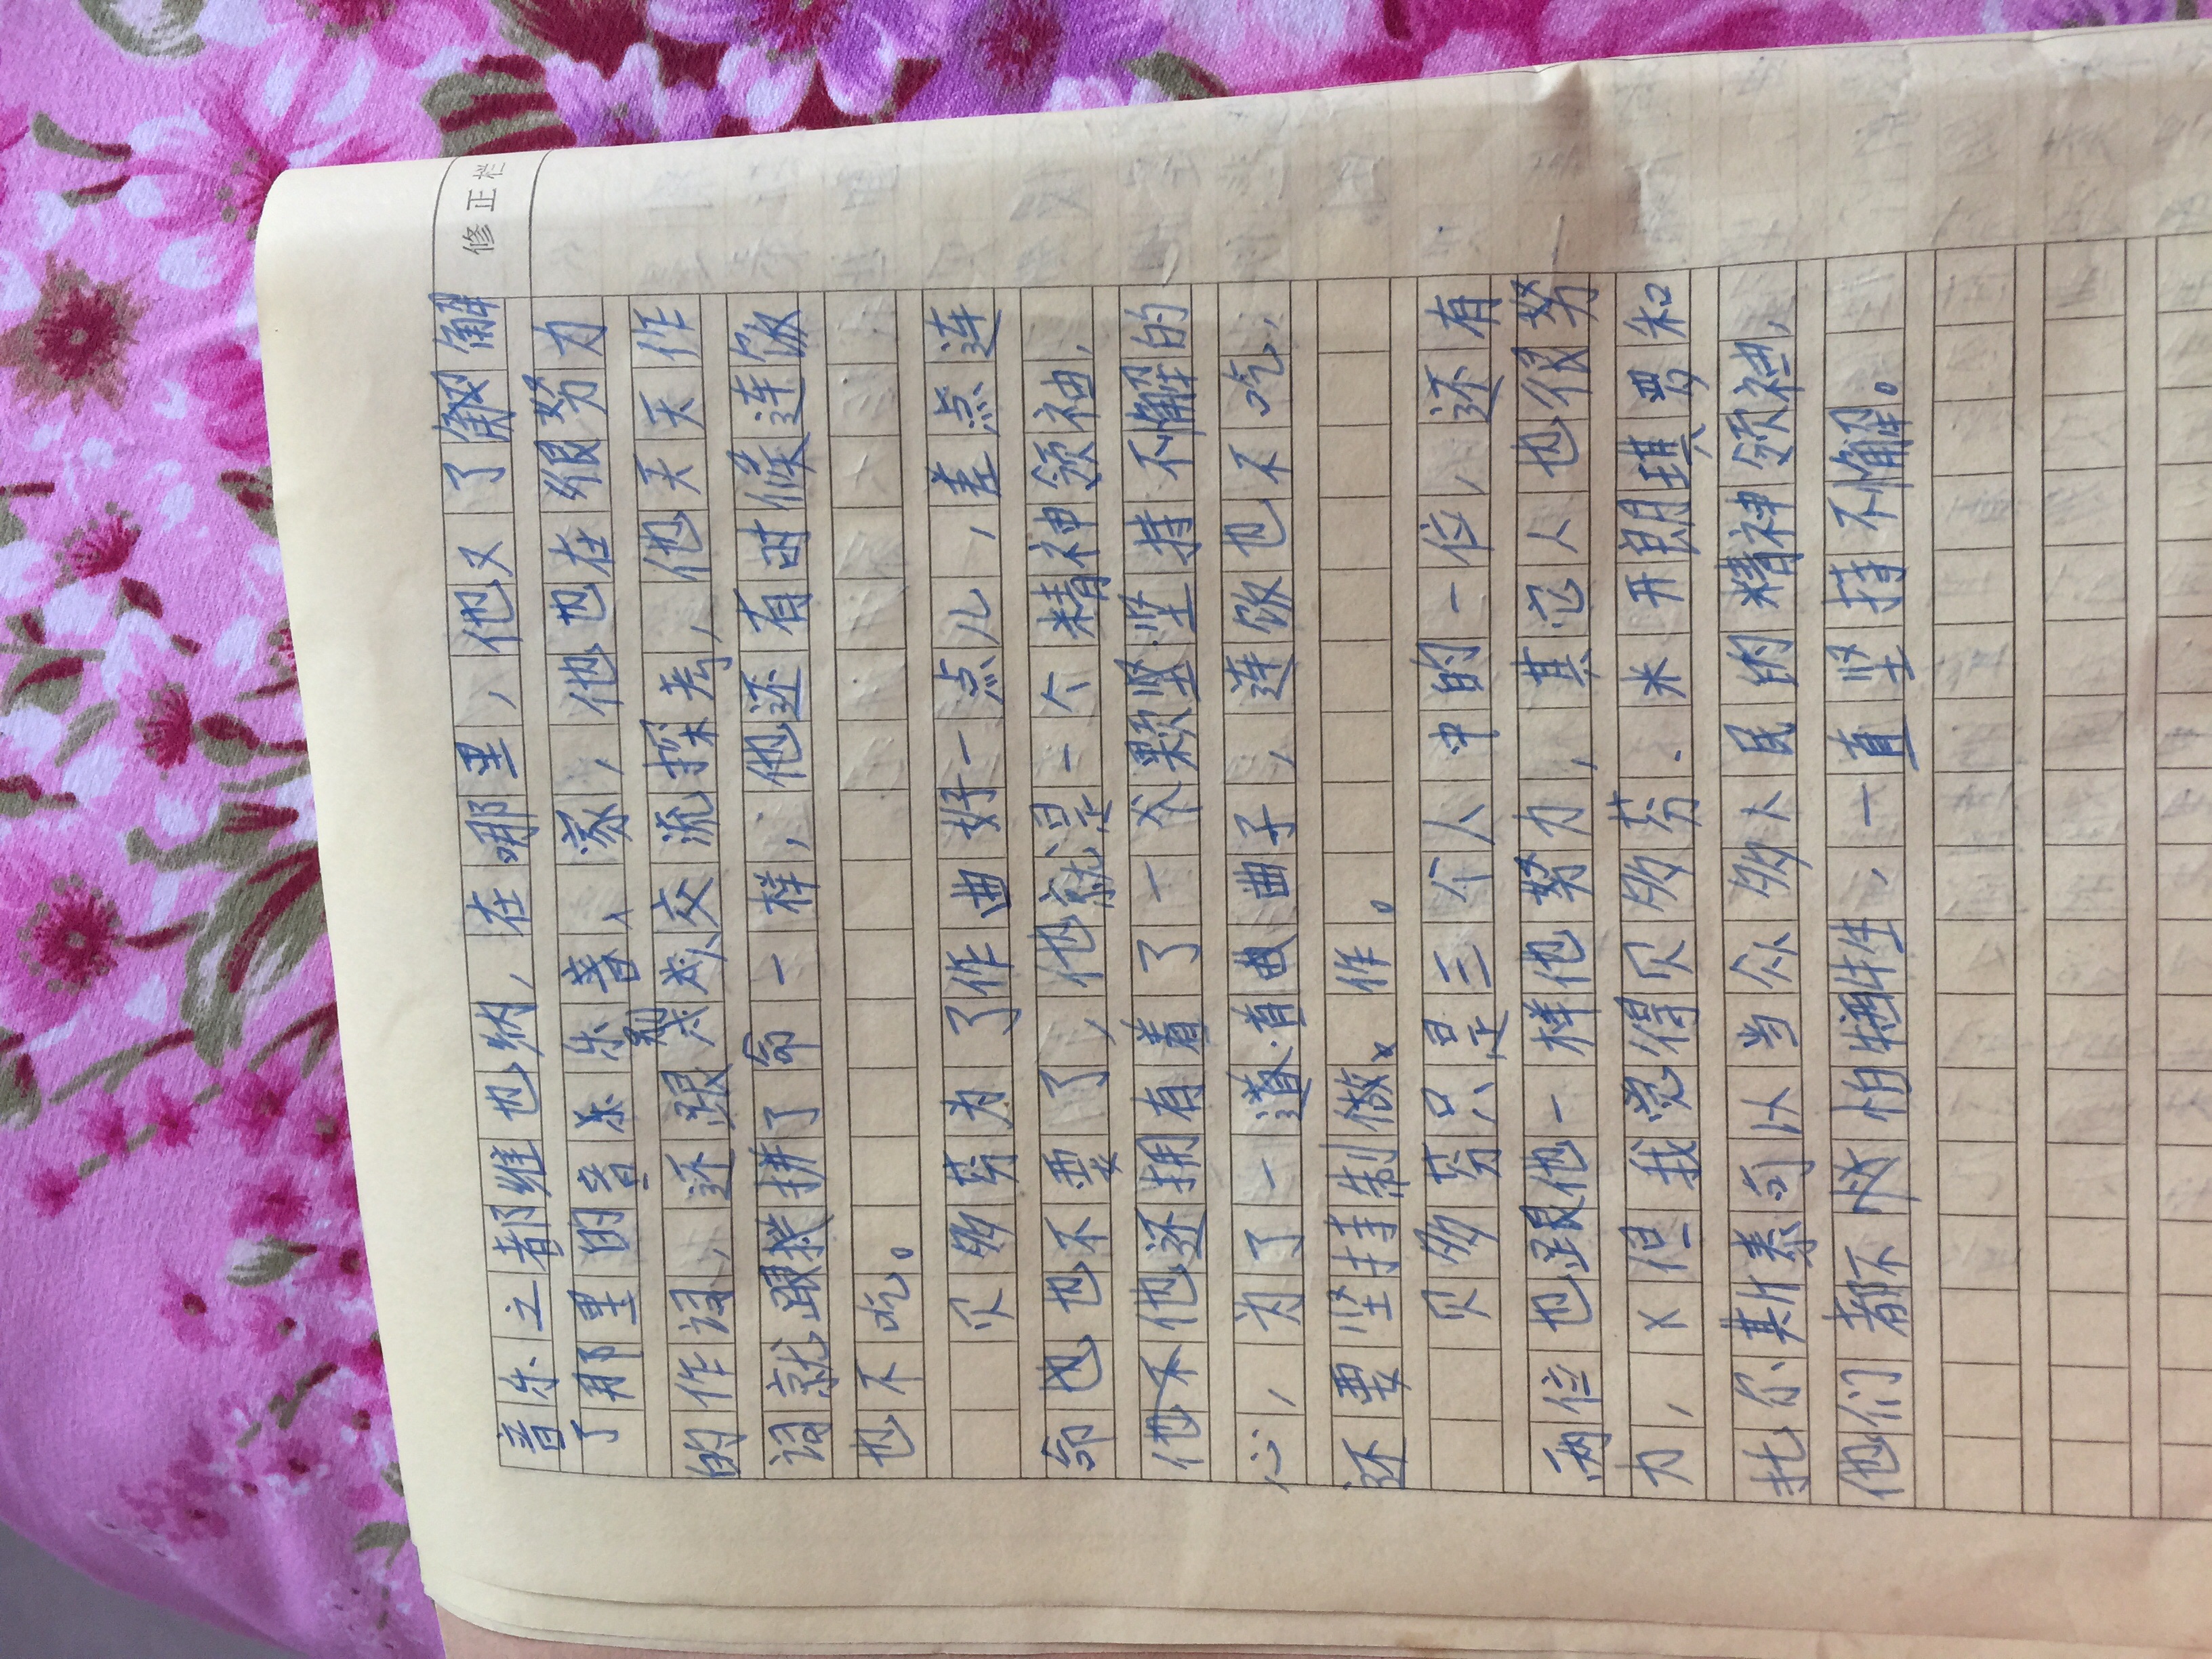 修正栏
音乐之都维也纳，在哪里，他又了解
了那里的音乐乐音、家，他也在很努力
的作词、还跟别人交流探考，他天天作
词就跟拼了命一样，他还有时候连饭
也不吃。
贝多芬为了作曲好一点儿，差点连
命也也不要了，他就是一个精神领袖，
他还拥有着了一颗坚持不懈的
心，为了一首曲子，连饭也不吃，
还要坚持制做作。
贝多芬只是三个人中的一位，还有
两位也跟他一样他努力，其它人也很努
力，但我觉得贝多芬．米开朗琪罗和
托尔斯泰可以当众多人民的精神领袖，
他们都不怕牺牲，一直坚持不懈。